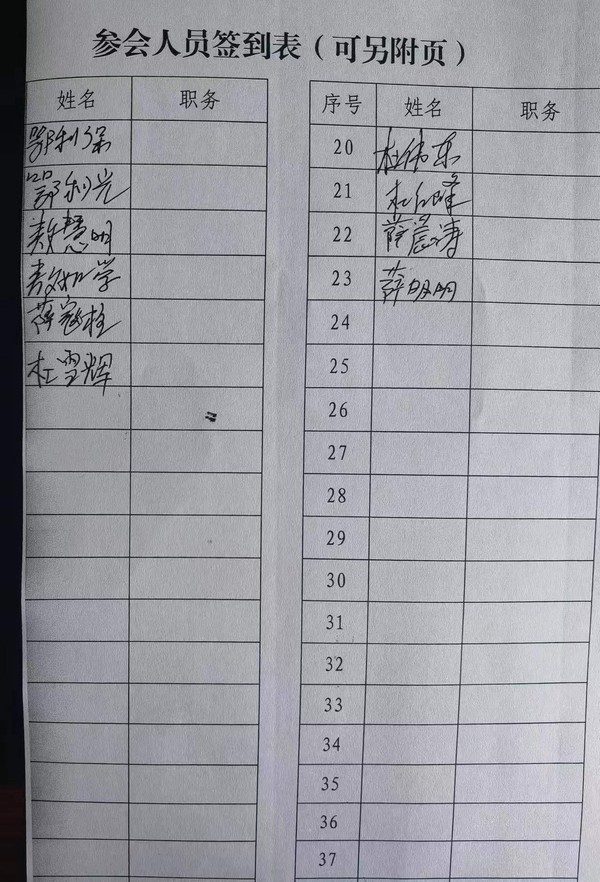 参会人员签到表（可另附页）
姓名 职务
郭利深
郭利光
敖慧明
薛冠柱
杜雪辉
序号 姓名 职务
20 杜伟东
21 杜红峰
22 薛晨涛
23 薛明明
24
25
26
27
28
29
30
31
32
33
34
35
36
37